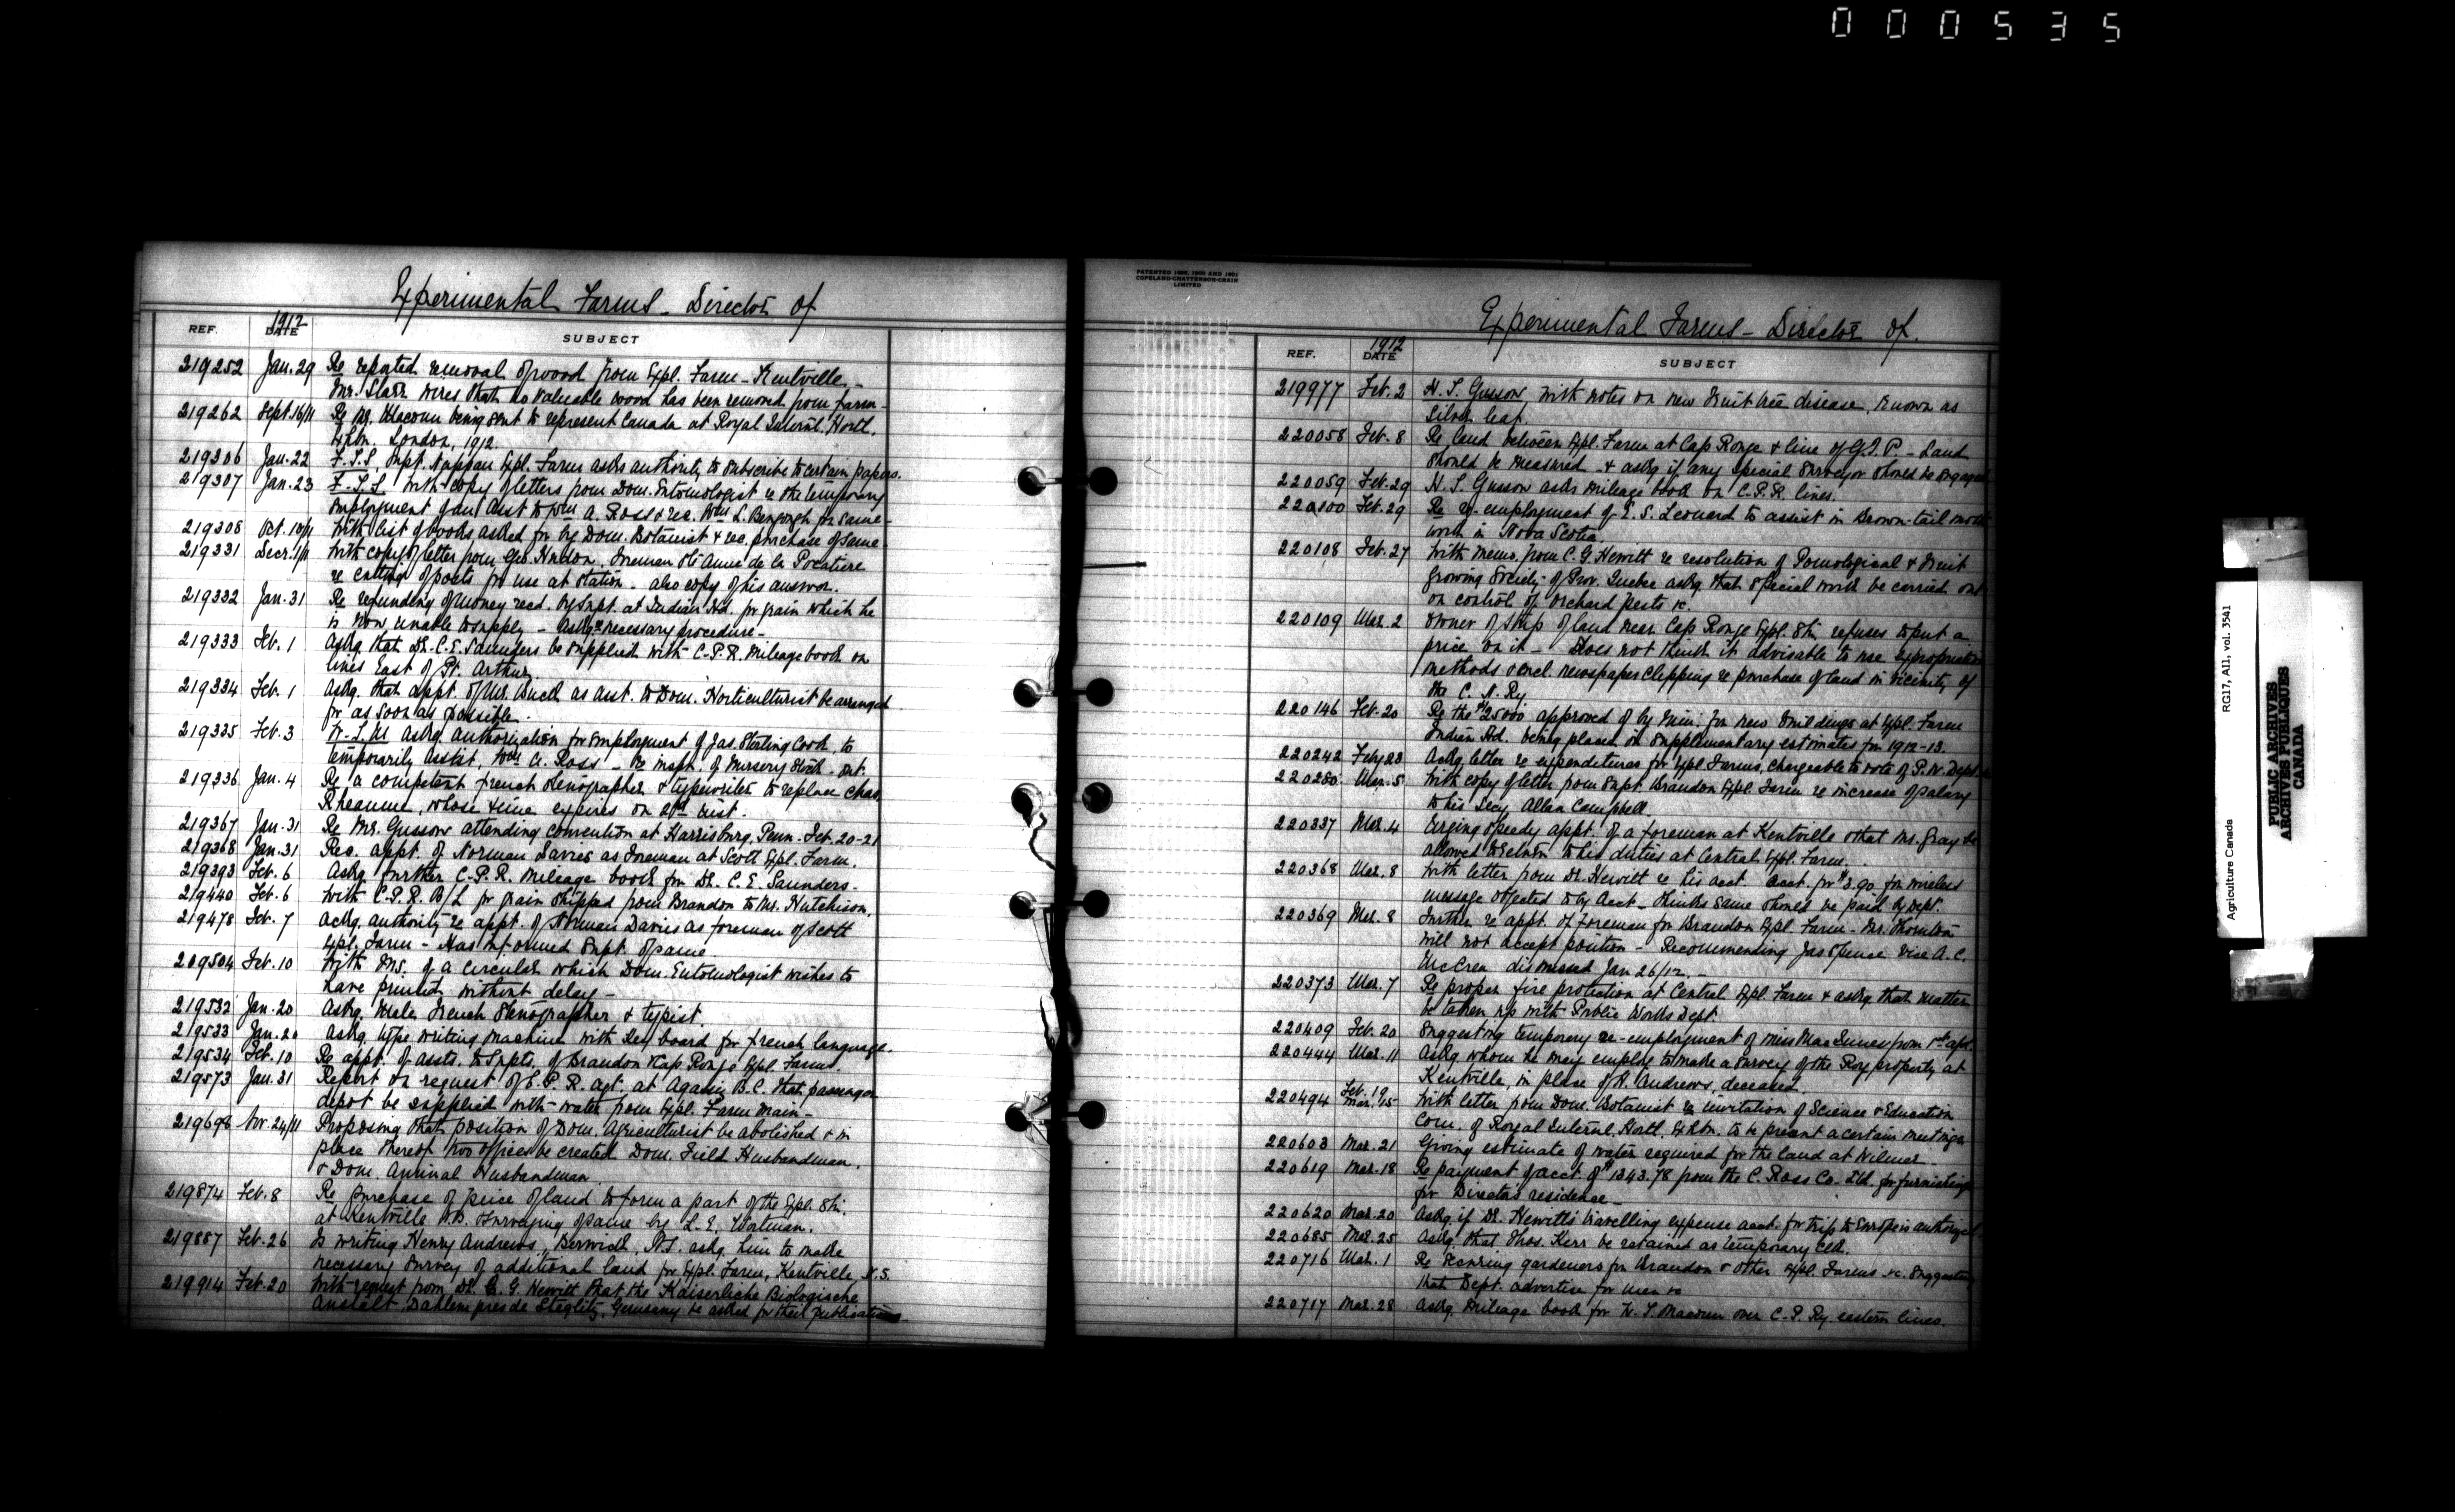 000535
Experimental Farms - Director of
1912
REF. DATE SUBJECT
219252 Jan. 29 Re reported removal of wood from Expl. Farm - Kentville -
Mr. Starr wires that no valuable wood has been removed from farm -
219262 Sept. 16/11 Re Mr. Macoun being sent to represent Canada at Royal Internl. Hortl.
Exhbn. London, 1912.
219306 Jan. 22 F.T.S. Supt. Nappan Expl. Farm asks authority to subscribe to certain papers.
219307 Jan. 23 F.T.S. with copy of letters from Dom. Entomologist re the temporary
employment of an asst to Wm A. Ross & rec. Wm L. Bengough for same -
219308 Oct. 10/11 With list of books asked for by Dom. Botanist & rec. purchase of same -
219331 Decr. 1/11 With copy of letter from Geo. Hudon, Foreman Ste Anne de la Pocatiere
re cutting of posts for use at Station - also copy of his answer.
219332 Jan. 31 Re refunding of money recd. by Supt. at Indian Hd. for grain which he
is now unable to supply - Askg necessary procedure -
219333 Feb. 1 Askg. that Dr. C.E. Saunders be supplied with C.P.R. Mileage book on
lines East of Pt. Arthur.
219334 Feb. 1 Askg. that appt. of Mr. Buck as asst. to Dom. Horticulturist be arranged
for as soon as possible.
219335 Feb. 3 askg. authorization for employment of Jas. Sterling Cook, to
temporarily assist, Wm A. Ross - re inspt. of Nursery Stock - Ont.
219336 Jan. 4 Re a competent French stenographer & typewriter to replace Chas
Rheaume whose time expires on inst.
219367 Jan. 31 Re Mr. Gussow attending convention at Harrisburg, Penn. Feb. 20-21
219368 Jan. 31 Rec. appt. of Norman Davies as Foreman at Scott Expl. Farm.
219393 Feb. 6 Askg. further C.P.R. Mileage book for Dr. C.E. Saunders.
219440 Feb. 6 With C.P.R. B/L for grain shipped from Brandon to Mr. Hutchison.
219478 Feb. 7 Ackg. authority re appt. of Norman Davies as foreman of Scott
Expl. Farm - Has informed Supt. of same
219504 Feb. 10 With Ms. of a circular which Dom. Entomologist wishes to
have printed without delay -
219532 Jan. 20 Askg. Male French Stenographer & typist.
219533 Jan. 20 Askg. type writing machine with key board for French language.
219534 Feb. 10 Re appt. of assts. to Supts. of Brandon & Cap Rouge Expl. Farms.
219573 Jan. 31 Report on request of C.P.R. agt. at Agassiz B.C. that passenger
depot be supplied with water from Expl. Farm main -
219696 Nov. 24/11 Proposing that position of Dom. Agriculturist be abolished & in
place thereof two offices be created Dom. Field Husbandman,
& Dom. Animal Husbandman
219874 Feb. 8 Re purchase of piece of land to form a part of the Expl. Stn.
at Kentville surveying of same by L.E. Wortman.
219887 Feb. 26 Is writing Henry Andrews, Berwick, N.S. askg. him to make
necessary survey of additional land for Expl. Farm, Kentville N.S.
219914 Feb. 20 With request from Dr. C.G. Hewitt that the Kaiserliche Biologische
Anstalt, Dahlem pres de Steglitz, Germany be asked for their publications
PATENTED 1898, 1900 AND 1901
COPELAND-CHATTERSON-CRAIN
LIMITED
Experimental Farms - Director of.
1912
REF. DATE SUBJECT
219977 Feb. 2 H.T. Gussow with notes on new fruit tree disease, known as
Silver leaf.
220058 Feb. 8 Re land between Expl. Farm at Cap Rouge & line of G.T.P. - Land
should be measured - & askg if any special surveyor should be engaged
220059 Feb. 29 H.T. Gussow asks mileage book on C.P.R. lines.
220100 Feb. 29 Re re-employment of E.S. Leonard to assist in Brown-tail moth
work in Nova Scotia
220108 Feb. 27 With memo. from C.G. Hewitt re resolution of Pomological & Fruit
Growing Society of Prov. Quebec askg. that special work be carried out
on control of orchard pests &c.
220109 Mar. 2 Owner of strip of land near Cap Rouge Expl. Stn. refuses to put a
price on it - Does not think it advisable to use expropriation
methods & encl. newspaper clipping re purchase of land in vicinity of
the C.N. Ry
220146 Feb. 20 Re the $25000 approved of by Min. for new buildings at Expl. Farm
Indian Hd. being placed in supplementary estimates for 1912-13.
220242 Feby 23 Ackg letter re expenditures for Expl. Farms, chargeable to vote of P.W. Dept.
220280 Mar. 5 With copy of letter from Supt. Brandon Expl. Farm re increase of salary
to his Secy. Allan Campbell
220337 Mar. 4 Urging speedy appt. of a foreman at Kentville & that Mr. Gray be
allowed to return to his duties at Central Expl. Farm.
220368 Mar. 8 With letter from Dr. Hewitt re his acct. Acct. for $3.90 for wireless
message objected to by Acct - Thinks same should be paid by Dept.
220369 Mar. 8 Further re appt. of Foreman for Brandon Expl. Farm - Mr. Thornton
will not accept position - Recommending Jas Spence vice A.C.
McCrea dismissed Jan 26/12. -
220373 Mar. 7 Re proper fire protection at Central Expl. Farm & askg. that matter
be taken up with Public Works Dept.
220409 Feb. 20 Suggesting temporary re-employment of Miss MacInnes from 1st apl.
220444 Mar. 11 Askg whom he may employ to make a survey of the Roy property at
Kentville, in place of H. Andrews, deceased.
220494 Feb. 19 Mar. 15 With letter from Dom. Botanist re invitation of Science & Education
Com. of Royal Internl. Hortl. Exhbn. to be present a certain meetings
220603 Mar. 21 Giving estimate of water required for the land at Wilmer
220619 Mar. 18 Re payment of acct. of $1343.78 from the C. Ross Co. Ltd. for furnishings
for Director's residence -
220620 Mar. 20 Askg. if Dr. Hewitt's travelling expense acct. for trip to Europe is authorized
220685 Mar. 25 Askg. that Thos. Kerr be retained as temporary clk.
220716 Mar. 1 Re securing gardeners for Brandon & other Expl. Farms &c. Suggesting
that Dept. advertise for men &c
220717 Mar. 28 Askg. mileage book for W.T. Macoun over C.P. Ry eastern lines.
Agriculture Canada RG17, A11, vol. 3541
PUBLIC ARCHIVES
ARCHIVES PUBLIQUES
CANADA